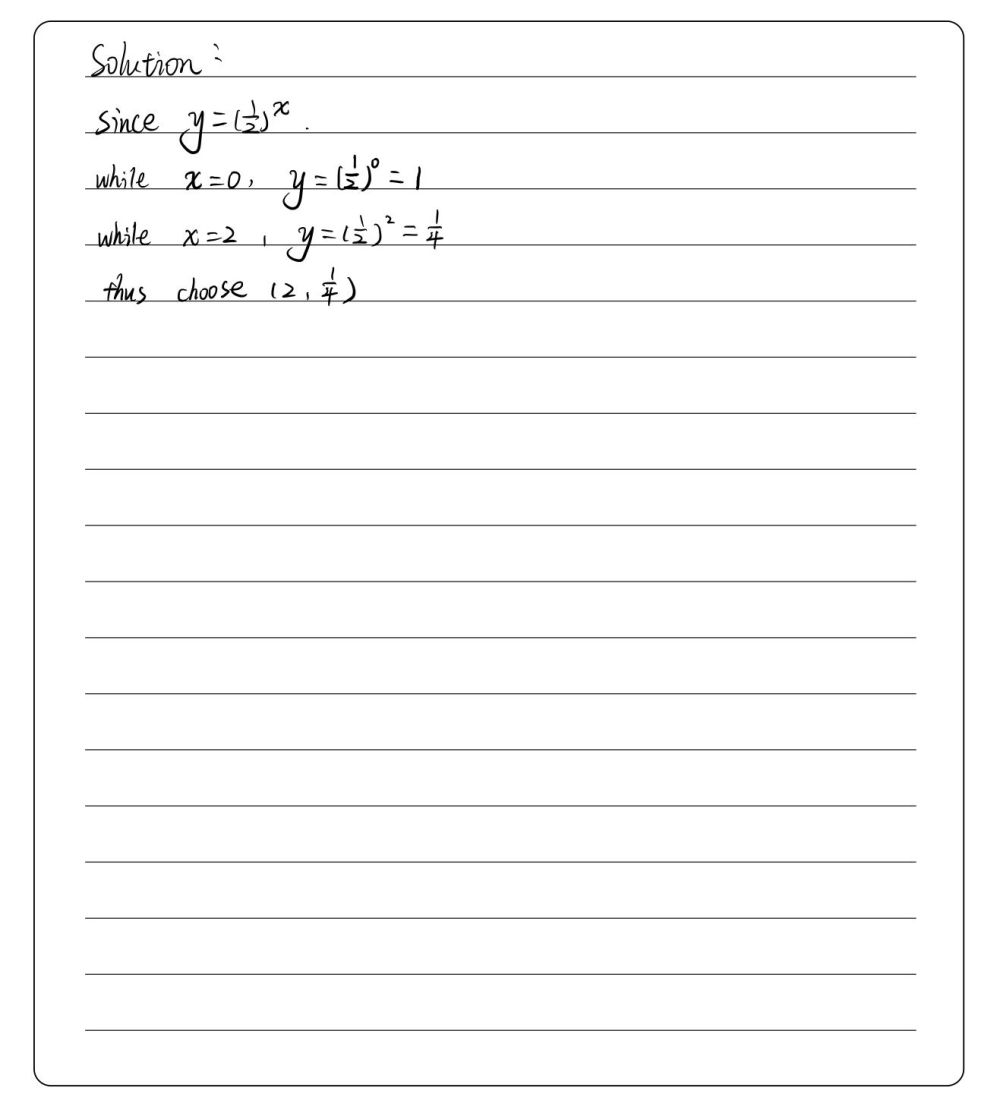 Solution:
since y=(1/2)^x.
while x=0, y=(1/2)^0=1
while x=2, y=(1/2)^2=1/4
thus choose (2, 1/4)